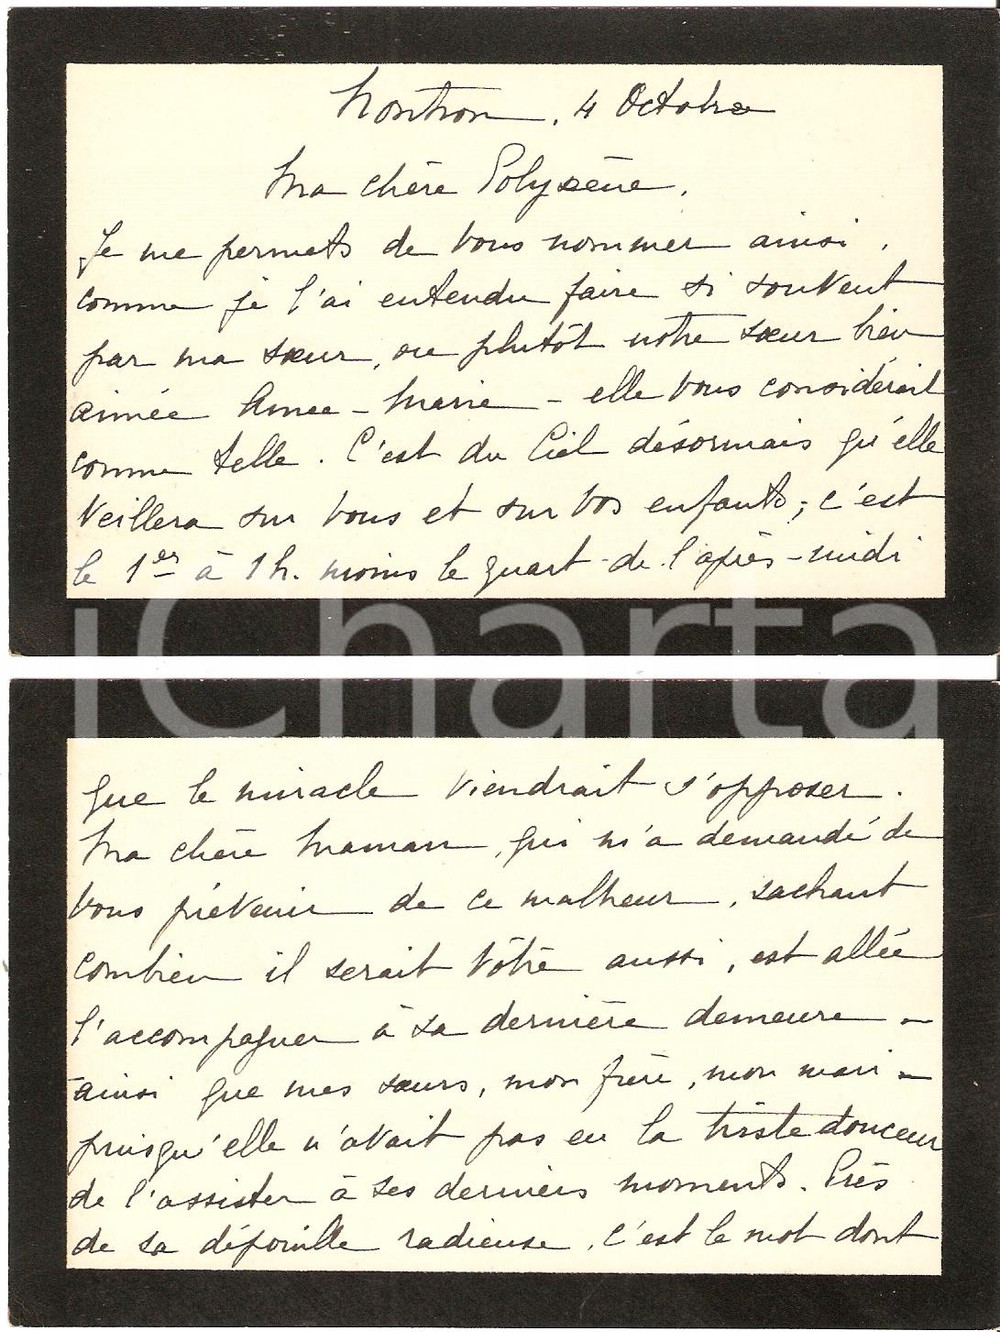 Nontron, 4 Octobre
Ma chère Polyxène,
Je me permets de vous nommer ainsi,
comme je l'ai entendu faire si souvent
par ma sœur, ou plutôt notre sœur bien
aimée Anne-Marie - elle vous considérait
comme telle. C'est du Ciel désormais qu'elle
veillera sur vous et sur vos enfants; c'est
le 1er à 1 h. moins le quart de l'après-midi
iCharta
que le miracle viendrait s'opposer.
Ma chère Maman, qui m'a demandé de
vous prévenir de ce malheur, sachant
combien il serait vôtre aussi, est allée
l'accompagner à sa dernière demeure -
ainsi que mes sœurs, mon frère, mon mari -
puisqu'elle n'avait pas eu la triste douceur
de l'assister à ses derniers moments. Près
de sa dépouille radieuse, c'est le mot dont